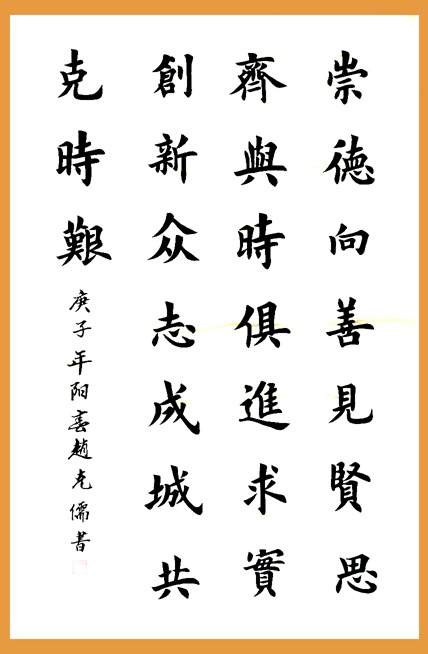 崇德向善見賢思
齊與時俱進求實
創新众志成城共
克時艱
庚子年阳春趙克儒書